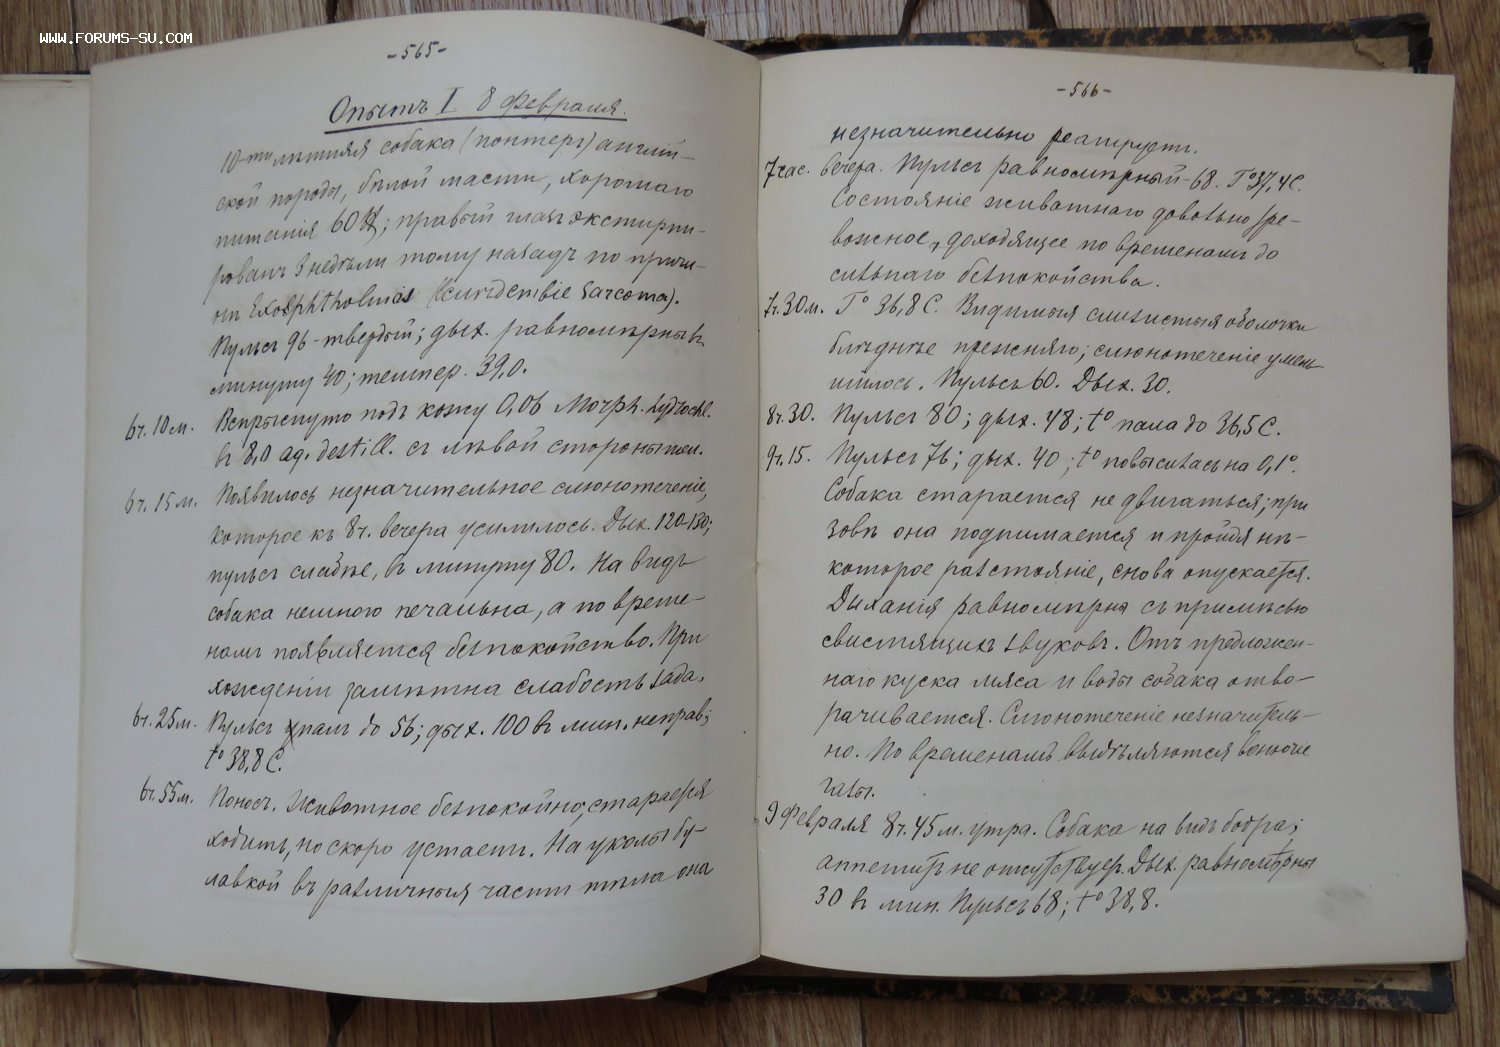 WWW.FORUMS-SU.COM
-565-
Опытъ I 8 Февраля.
10-ти лѣтняя собака (понтеръ) англій-
ской породы, бѣлой масти, хорошаго
питанія 60 ℔; правый глазъ экстирпи-
рованъ 3 недѣли тому назадъ по причи-
нѣ Exophthalmos (вслѣдствіе Sarcoma).
Пульсъ 96-твердый; дых. равномѣрны въ
минуту 40; темпер. 39,0.
6ч. 10м. Впрыснуто подъ кожу 0,06 Morph. hydrochl.
въ 8,0 aq. destill. съ лѣвой стороны шеи.
6ч. 15м. Появилось незначительное слюнотеченіе,
которое къ 8ч. вечера усилилось. Дых. 120-130;
пульсъ слабѣе, въ минуту 80. На видъ
собака немного печальна, а по време-
намъ появляется безпокойство. При
хожденіи замѣтна слабость зада.
6ч. 25м. Пульсъ упалъ до 56; дых. 100 въ мин. неправ;
t° 38,8 C.
6ч. 55м. Поносъ. Животное безпокойно, старается
ходить, но скоро устаетъ. На уколы бу-
лавкой въ различныя части тѣла она
-566-
незначительно реагируетъ.
7 час. вечера. Пульсъ равномѣрный-68. T° 37,4 C.
Состояніе животнаго довольно тре-
вожное, доходящее по временамъ до
сильнаго безпокойства.
7ч. 30м. T° 36,8 C. Видимыя слизистыя оболочки
блѣднѣе прежняго; слюнотеченіе умень
шилось. Пульсъ 60. Дых. 30.
8ч. 30. Пульсъ 80; дых. 48; t° пала до 36,5 C.
9ч. 15. Пульсъ 76; дых. 40; t° повысилась на 0,1°.
Собака старается не двигаться; при
зовѣ она поднимается и пройдя нѣ-
которое разстояніе, снова опускается.
Дыханія равномѣрны съ примѣсью
свистящихъ звуковъ. Отъ предложен-
наго куска мяса и воды собака отво-
рачивается. Слюнотеченіе незначитель-
но. По временамъ выдѣляются вонючіе
газы.
9 Февраля 8ч. 45м. утра. Собака на видъ бодра;
аппетитъ не отсутствуетъ. Дых. равномѣрны
30 въ мин. Пульсъ 68; t° 38,8.